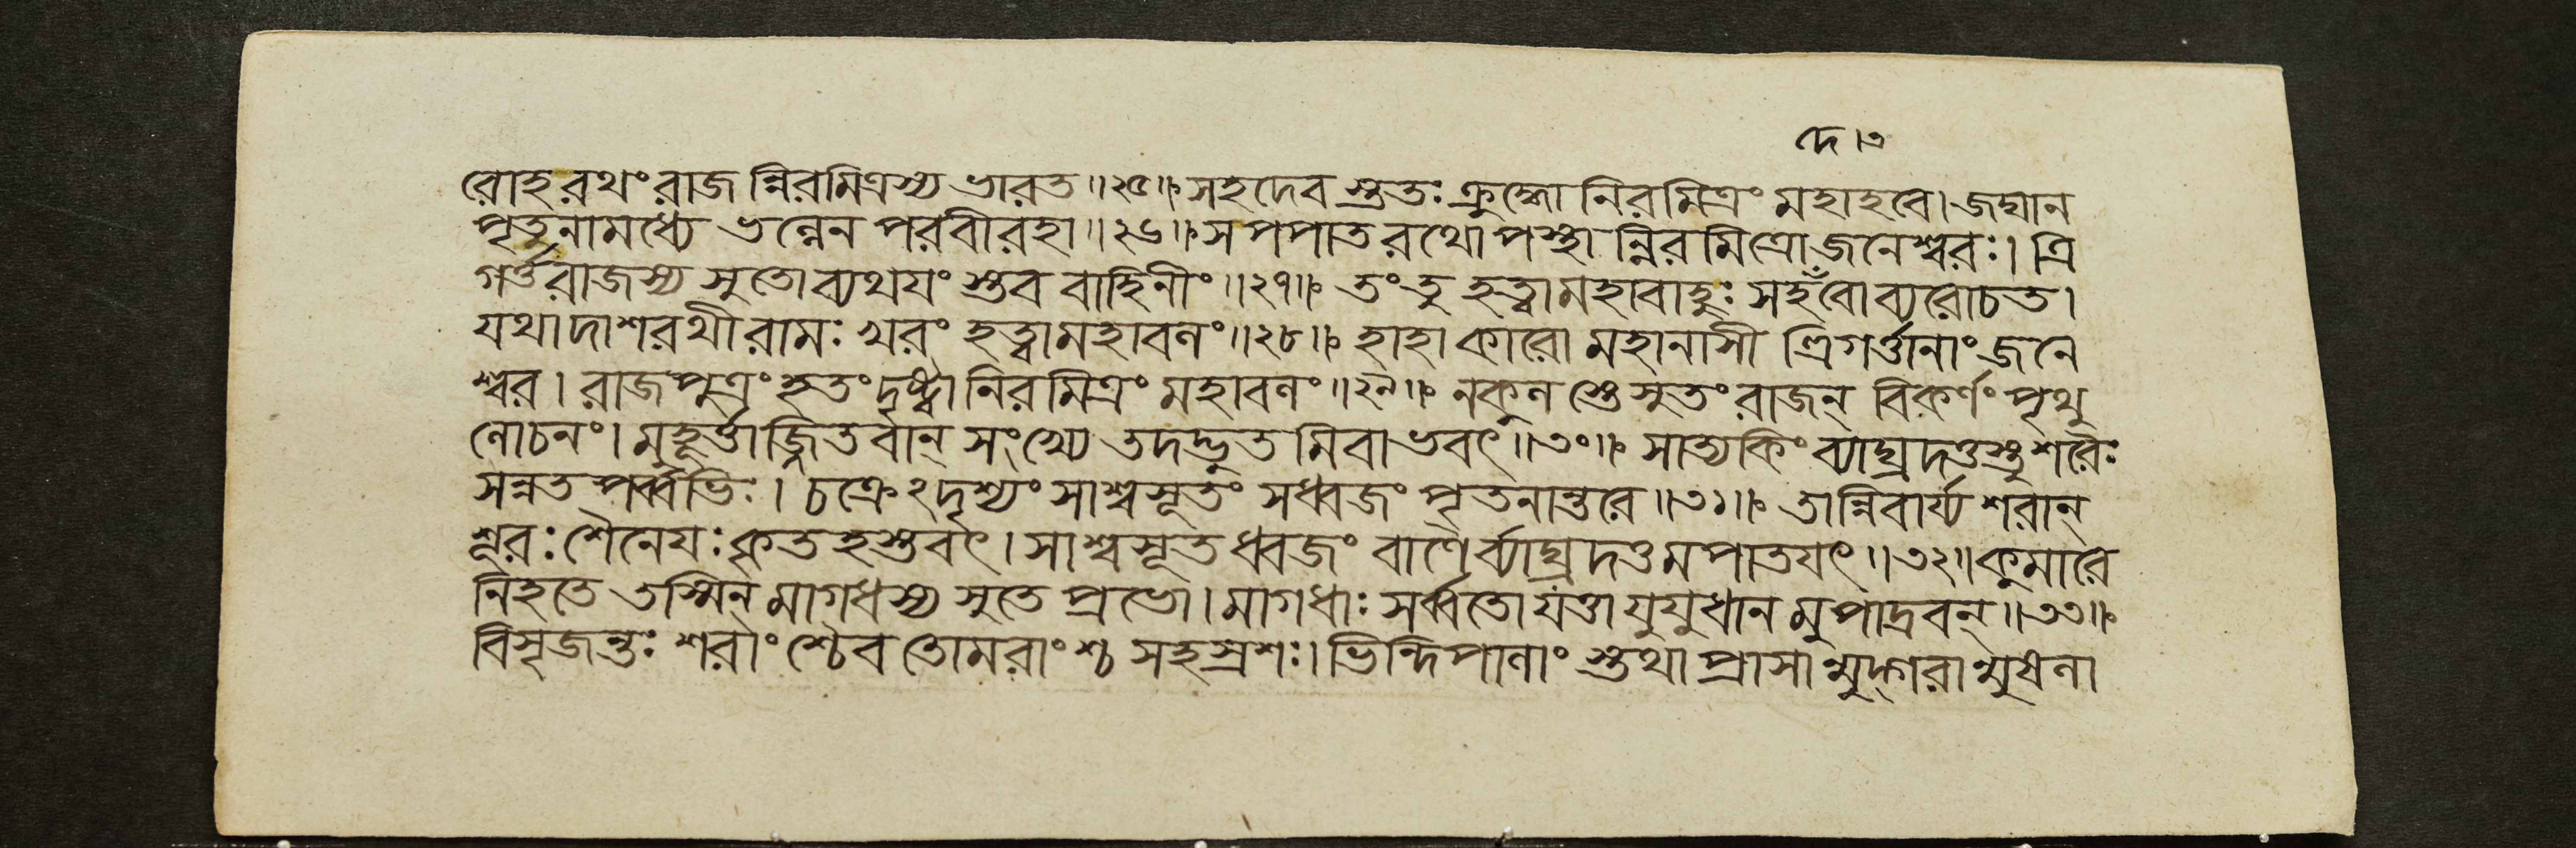 দে।৩
রোহ রথং রাজ ন্নিরমিত্রস্য ভারত॥২৫॥ সহদেব স্তুতঃ ক্রুদ্ধো নিরমিত্রং মহাহবে। জঘান
পৃতনামধ্যে ভল্লেন পরবীরহা॥২৬॥ স পপাত রথোপস্থা ন্নিরমিত্রো জনেশ্বরঃ। ত্রি
গর্ত্তরাজস্য সুতো ব্যথযং স্তব বাহিনীং॥২৭॥ তং তু হত্বা মহাবাহুঃ সহদেবো ব্যরোচত।
যথা দাশরথী রামঃ খরং হত্বা মহাবলং॥২৮॥ হাহাকারো মহানাসী ত্ত্রিগর্ত্তানাং জনে
শ্বর। রাজপুত্রং হতং দৃষ্ট্বা নিরমিত্রং মহাবলং॥২৯॥ নকুল স্তে সুতং রাজন্ বিকর্ণং পৃথু
লোচনং। মুহূর্ত্তাজ্জিতবান্ সংখ্যে তদদ্ভুত মিবাভবৎ॥৩০॥ সাত্যকিং ব্যাঘ্রদত্তস্তু শরৈঃ
সন্নত পর্ব্বভিঃ। চক্রেঽদৃশ্যং সাশ্বসূতং সধ্বজং পৃতনান্তরে॥৩১॥ তান্নিবার্য্য শরান্
শূরঃ শৈনেযঃ কৃতহস্তবৎ। সাশ্বসূতধ্বজং বাণৈর্ব্যাঘ্রদত্তমপাতযৎ॥৩২॥ কুমারে
নিহতে তস্মিন্ মাগধস্য সুতে প্রভো। মাগধাঃ সর্ব্বতো যত্তা যুযুধান মুপাদ্রবন্॥৩৩॥
বিসৃজন্তঃ শরাং শ্চৈব তোমরাং শ্চ সহস্রশঃ। ভিন্দিপালাং স্তথা প্রাসা ন্মুদ্গরা ন্মুষলা